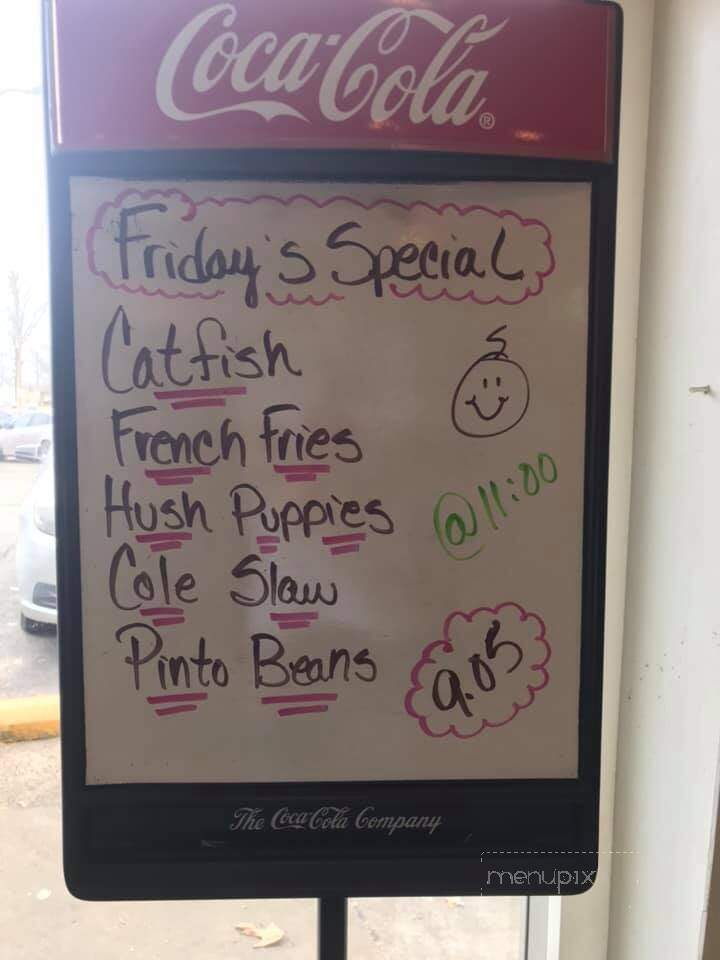 Coca-Cola®
Friday's Special
Catfish
French Fries
Hush Puppies
@11:00
Cole Slaw
Pinto Beans
9.05
The Coca-Cola Company
menupix